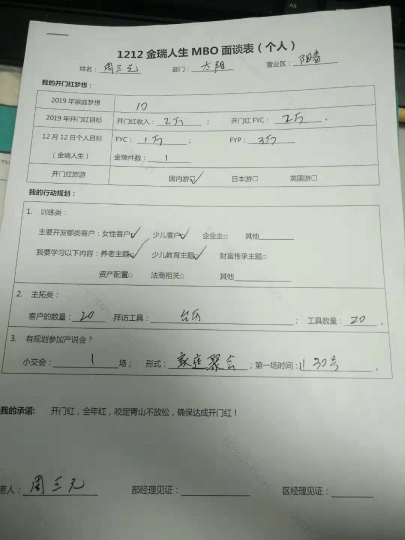 1212 金瑞人生 MBO 面谈表（个人）
姓名：周三元 部门：太阳 营业区：
我的开门红梦想：
2019 年家庭梦想
2019 年开门红目标 开门红收入：2万； 开门红 FYC：2万.
12 月 12 日个人目标 FYC：1万； FYP：3万
（金瑞人生） 金瑞件数：1
开门红旅游 国内游☑ 日本游□ 英国游□
我的行动规划：
1. 训练类：
主要开发哪类客户：女性客户☑ 少儿客户☑ 企业主□ 其他
我要学习以下内容：养老主题☑ 少儿教育主题☑ 财富传承主题□
资产配置□ 法商相关□ 其他
2. 主拓类：
客户的数量：20 拜访工具：台历； 工具数量：20.
3. 有规划参加产说会？
小交会：1 场； 形式：家庭聚会；第一场时间：11.30号.
我的承诺： 开门红，全年红，咬定青山不放松，确保达成开门红！
诺人：周三元 部经理见证： 区经理见证：